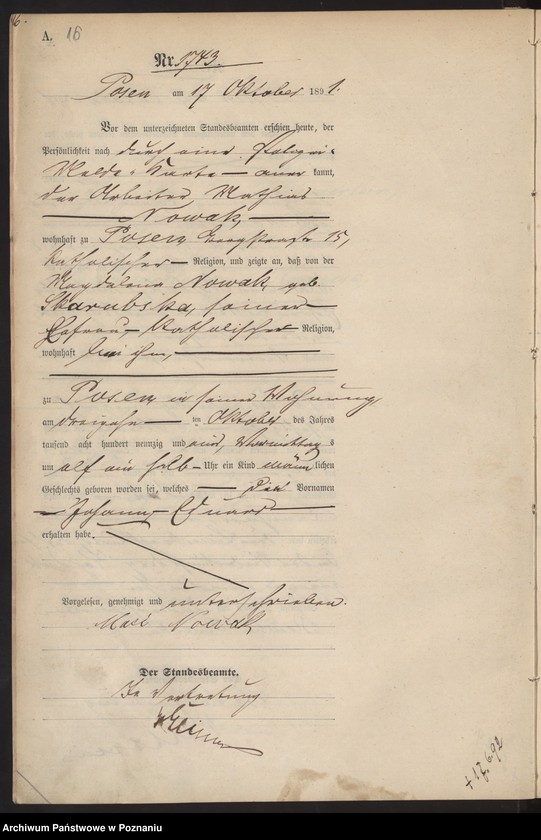 16.
A. 16
Nr. 1743.
Posen am 17 Oktober 1891.
Vor dem unterzeichneten Standesbeamten erschien heute, der
Persönlichkeit nach durch eine Polizei-
Melde-Karte — aner kannt,
der Arbeiter Mathias
Nowak,
wohnhaft zu Posen 15,
katholischer — Religion, und zeigte an, daß von der
Magdalena Nowak, geb.
Skarubska, seiner
Ehefrau, katholischer Religion,
wohnhaft bei ihm,
zu Posen in seiner Wohnung
am dreizehn — ten Oktober des Jahres
tausend acht hundert neunzig und eins, Vormittags
um elf ein halb — Uhr ein Kind männlichen
Geschlechts geboren worden sei, welches — die Vornamen
— Johann Eduard —
erhalten habe.
Vorgelesen, genehmigt und unterschrieben.
Nowak
Der Standesbeamte.
In Vertretung
+ 17.6.92
Archiwum Państwowe w Poznaniu